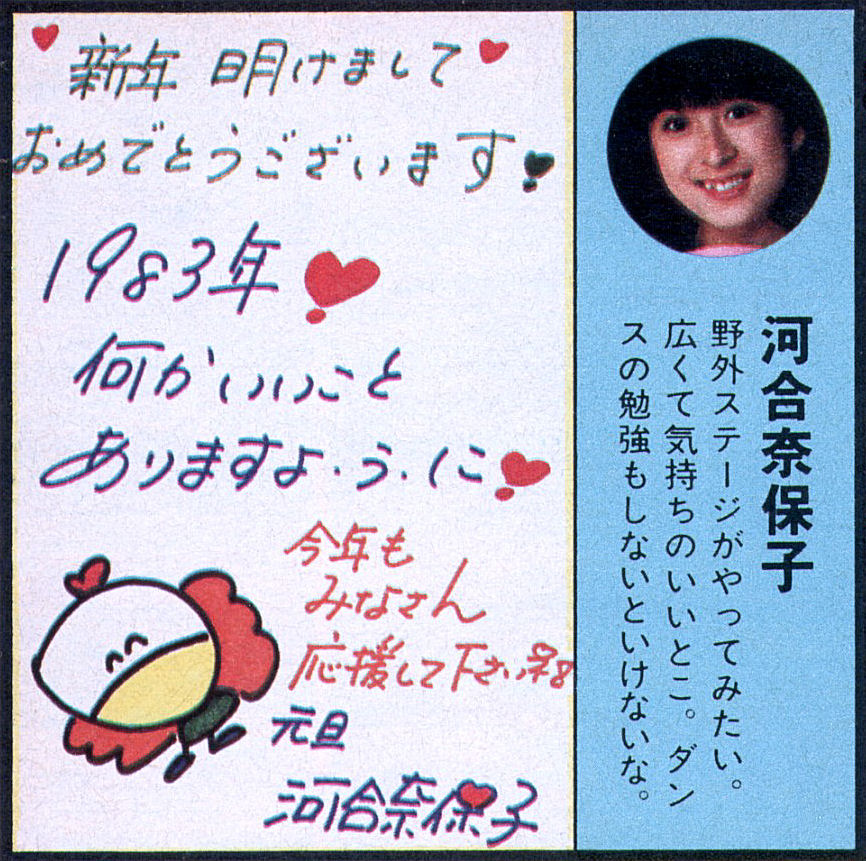 新年 明けまして
おめでとうございます
1983年
何かいいこと
ありますよ・う・に
今年も
みなさん
応援して下さいネ
元旦
河合奈保子
河合奈保子
野外ステージがやってみたい。
広くて気持ちのいいとこ。ダン
スの勉強もしないといけないな。